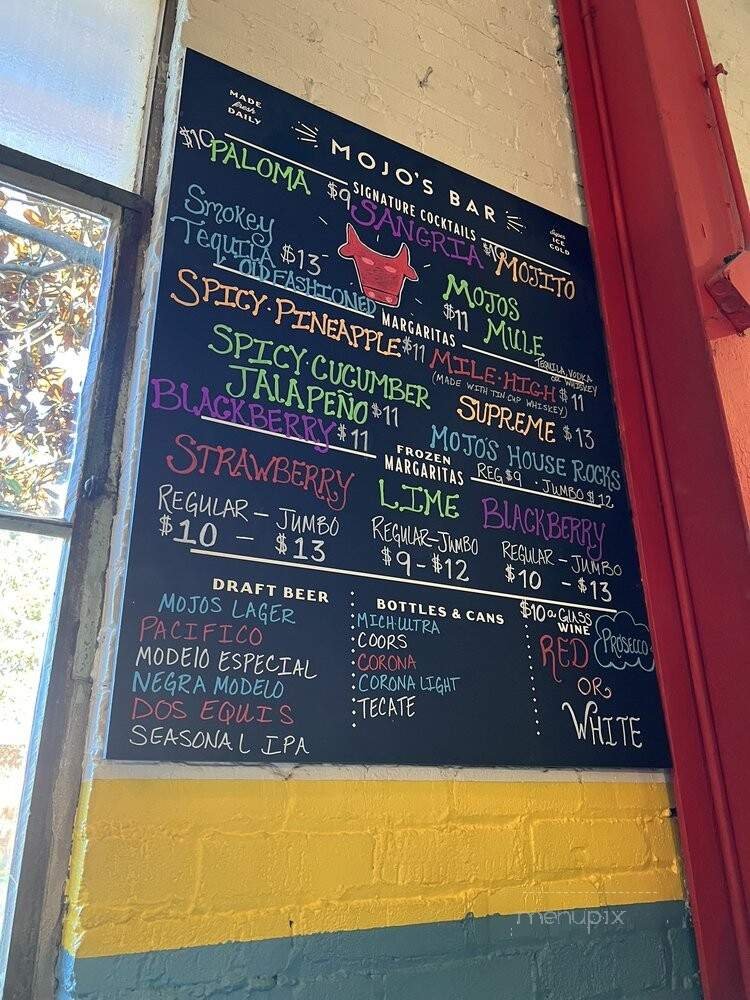 MADE
fresh
DAILY
MOJO'S BAR
SIGNATURE COCKTAILS
ICE
COLD
$10 PALOMA
$9 SANGRIA
MOJITO
Smokey
Tequila $13
OLD FASHIONED
MOJOS
$11 MULE
TEQUILA, VODKA
OR WHISKEY
MARGARITAS
SPICY·PINEAPPLE $11
MILE·HIGH $11
(MADE WITH TIN CUP WHISKEY)
SPICY·CUCUMBER
JALAPEÑO $11
SUPREME $13
BLACKBERRY $11
MOJO'S HOUSE ROCKS
REG $9 · JUMBO $12
FROZEN
MARGARITAS
STRAWBERRY
REGULAR – JUMBO
$10 – $13
LIME
REGULAR-JUMBO
$9 - $12
BLACKBERRY
REGULAR - JUMBO
$10 - $13
DRAFT BEER
MOJOS LAGER
PACIFICO
MODElO ESPECIAL
NEGRA MODELO
DOS EQUIS
SEASONAL IPA
BOTTLES & CANS
MICH ULTRA
COORS
CORONA
CORONA LIGHT
TECATE
$10 a GLASS
WINE
RED
PROSECCO
OR
WHITE
menupix